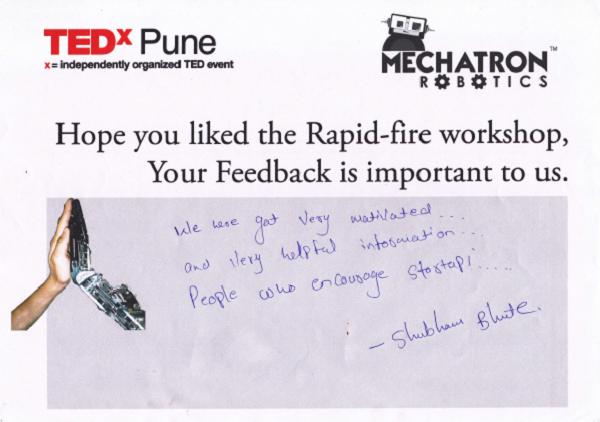 TEDx Pune
x = independently organized TED event
MECHATRON™
ROBOTICS
Hope you liked the Rapid-fire workshop,
Your Feedback is important to us.
We here got very motivated...
and very helpful information...
People who encourage startup!.....
- Shubham Bhute.